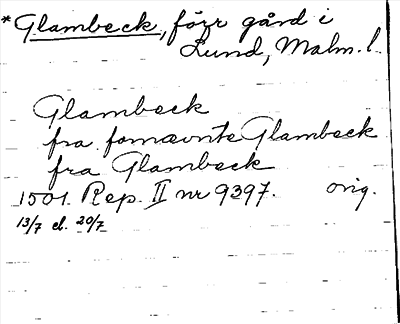 *Glambeck, förr gård i
Lund, Malm. l.
Glambeck
fra fornævnte Glambeck
fra Glambeck
1501. Rep. II nr 9397. orig.
13/7 el. 20/7